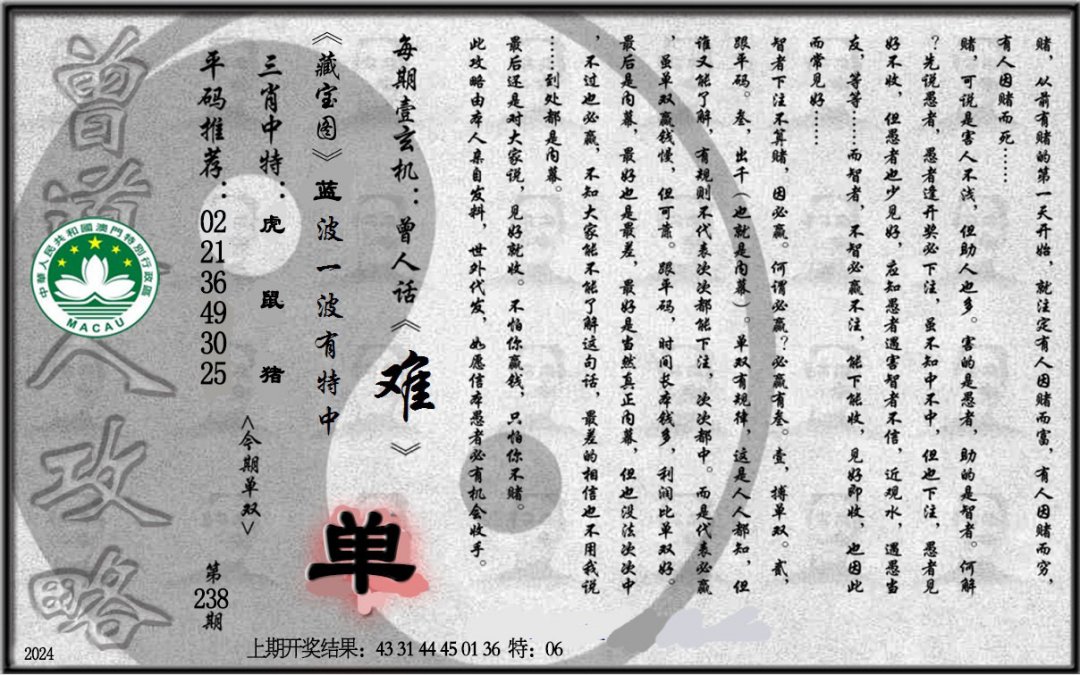 赌，从前有赌的第一天开始，就注定有人因赌而富，有人因赌而穷，
有人因赌而死……
赌，可说是害人不浅，但助人也多。害的是愚者，助的是智者。何解
？先说愚者，愚者逢开奖必下注，虽不知中不中，但也下注，愚者见
好不收，但愚者也少见好，应知愚者遇害智者不信，近观水，遇愚当
友，等等……而智者，不智必赢不注，能下能收，见好即收，也因此
而常见好……
智者下注不算赌，因必赢。何谓必赢？必赢有叁。壹，搏单双。贰，
跟平码。叁，出千（也就是内幕）。单双有规律，这是人人都知，但
谁又能了解，有规则不代表次次都能下注，次次都中。而是代表必赢
，虽单双赢钱慢，但可靠。跟平码，时间长本钱多，利润比单双好。
最后是内幕，最好也是最差，最好是当然真正内幕，但也没法次次中
，不过也必赢，不知大家能不能了解这句话，最差的相信也不用我说
……到处都是内幕。
最后还是对大家说，见好就收。不怕你赢钱，只怕你不赌。
此攻略由本人亲自发料，世外代发，如愿信本愚者必有机会收手。
每期壹玄机：曾人话《难》
《藏宝图》蓝波一波有特中
三肖中特：虎 鼠 猪
平码推荐：02 21 36 49 30 25
<今期单双>
单
第238期
曾道人攻略
中華人民共和國澳門特別行政區
MACAU
2024
上期开奖结果：43 31 44 45 01 36 特：06